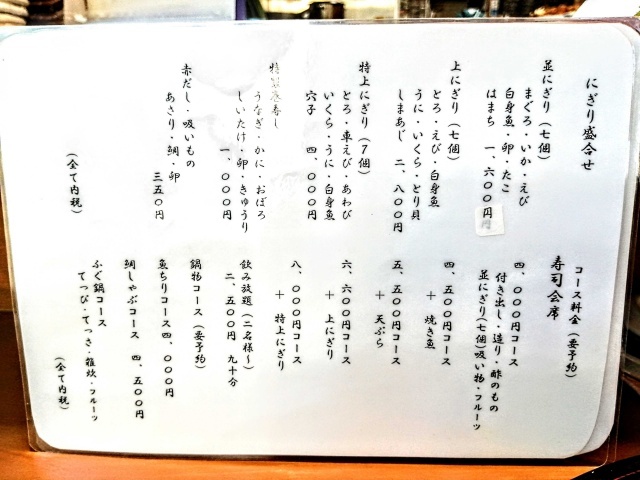 にぎり盛合せ
並にぎり(七個)
まぐろ・いか・えび
白身魚・卵・たこ
はまち 一、六〇〇円
上にぎり(七個)
とろ・えび・白身魚
うに・いくら・とり貝
しまあじ 二、八〇〇円
特上にぎり(7個)
とろ・車えび・あわび
いくら・うに・白身魚
穴子 四、〇〇〇円
特製巻寿し
うなぎ・かに・おぼろ
しいたけ・卵・きゅうり
一、〇〇〇円
赤だし・吸いもの
あさり・鯛・卵
三五〇円
(全て内税)
コース料金(要予約)
寿司会席
四、〇〇〇円コース
付き出し・造り・酢のもの
並にぎり(七個)吸い物・フルーツ
四、五〇〇円コース
+ 焼き魚
五、五〇〇円コース
+ 天ぷら
六、六〇〇円コース
+ 上にぎり
八、〇〇〇円コース
+ 特上にぎり
飲み放題(二名様〜)
二、五〇〇円 九十分
鍋物コース(要予約)
魚ちりコース 四、〇〇〇円
鯛しゃぶコース 四、五〇〇円
ふぐ鍋コース
てっぴ・てっさ・雑炊・フルーツ
(全て内税)